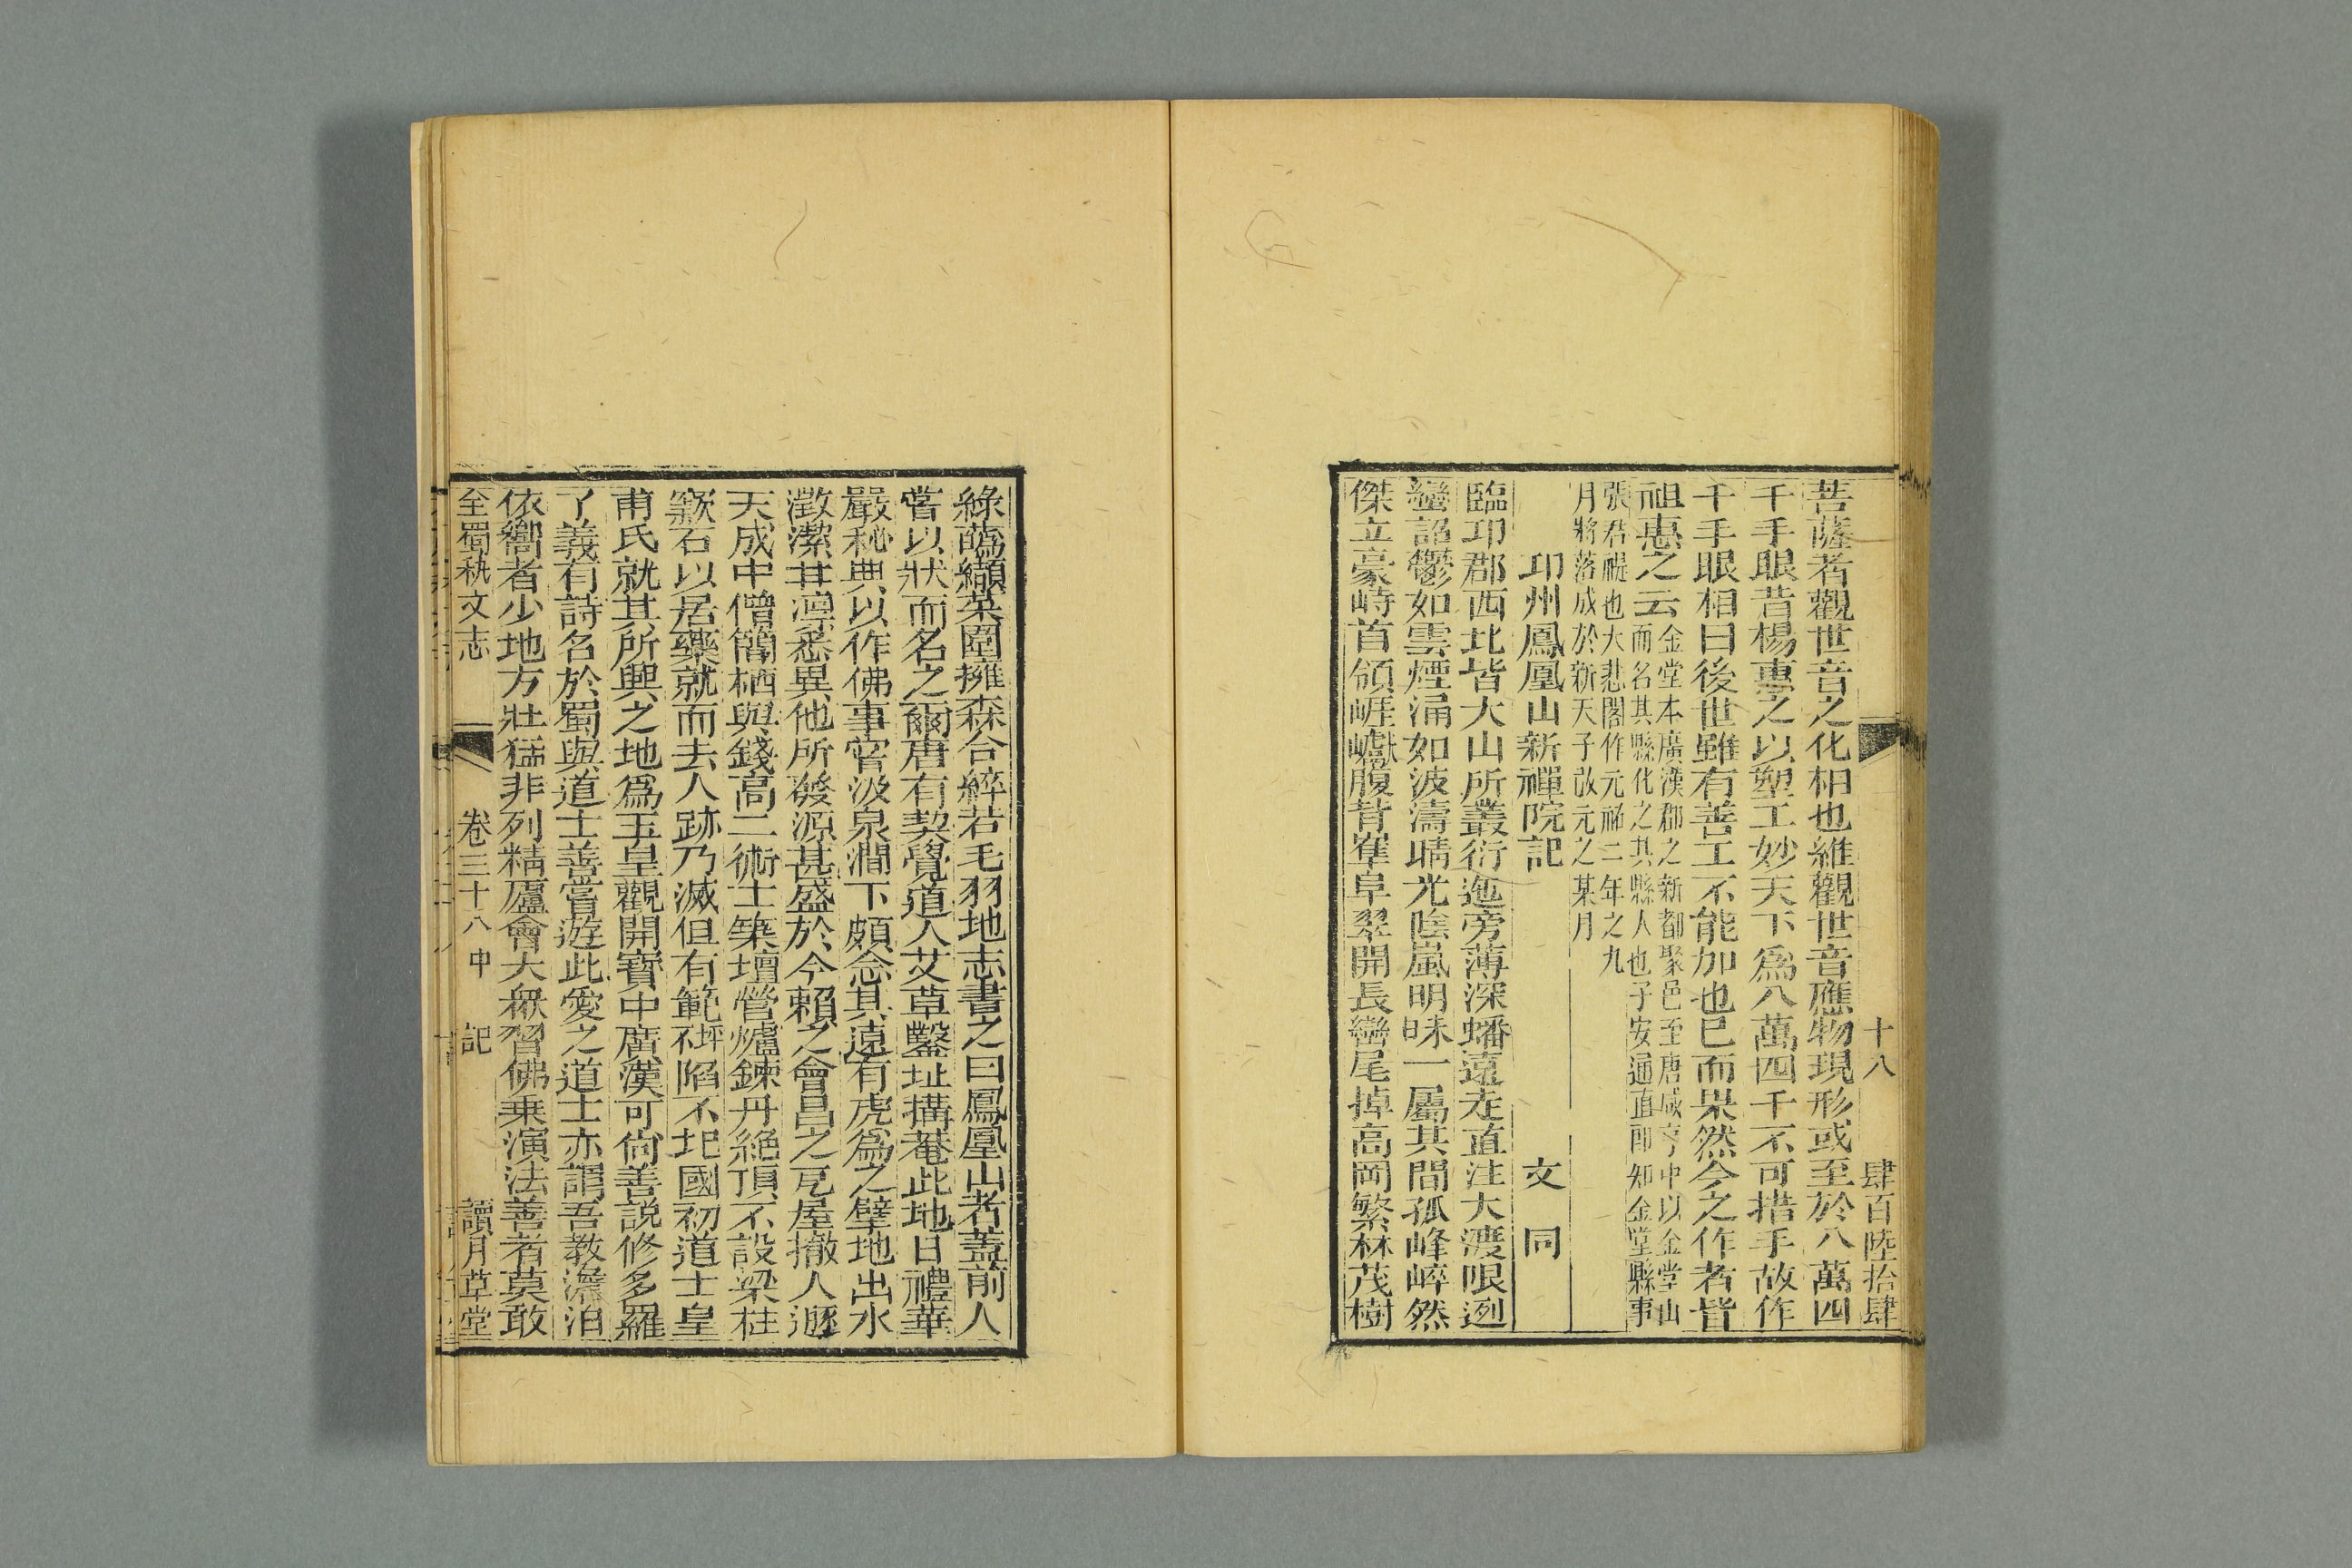 十八　肆百陸拾肆
菩薩者觀世音之化相也維觀世音應物現形或至於八萬四
千手眼昔楊惠之以塑工妙天下爲八萬四千不可措手故作
千手眼相曰後世雖有善工不能加也已而果然今之作者皆
祖惠之云
金堂本廣漢郡之新都聚邑至唐咸亨中以金堂山
而名其縣化之其縣人也子安通直郎知金堂縣事
張君禔也大悲閣作元祐二年之九
月將落成於新天子啟元之某月
卭州鳳凰山新禪院記　文同
臨卭郡西北皆大山所叢衍迤旁薄深蟠遠走直注大渡限迾
蠻詔鬱如雲煙涌如波濤晴光陰嵐明昧一屬其間孤峰崪然
傑立豪峙首領崕巘腹背崔阜翠開長巒尾掉高岡繁林茂樹
綠蘤纈葉圍擁森合綷若毛羽地志書之曰鳳凰山者蓋前人
嘗以狀而名之爾唐有契覺道人艾草鑿址搆菴此地日禮華
嚴秘典以作佛事甞汲泉澗下頗念其遠有虎爲之擘地出水
澂潔甘凉悉異他所發源甚盛於今賴之會昌之瓦屋撤人遯
天成中僧簡栖與錢高二術士築壇營爐鍊丹絶頂不設梁柱
窾石以居藥就而去人跡乃滅但有範坏陷不圯國初道士皇
甫氏就其所興之地爲玉皇觀開寶中廣漢可尙善説修多羅
了義有詩名於蜀與道士善嘗遊此愛之道士亦謂吾教澹泊
依嚮者少地方壯猛非列精廬會大衆習佛乗演法善者莫敢
全蜀秇文志　卷三十八中　記　讀月草堂